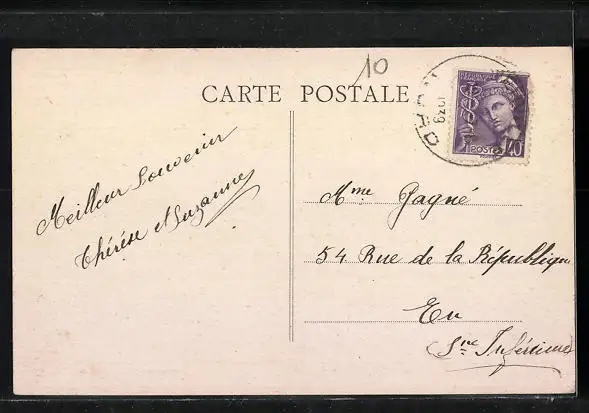 10
CARTE POSTALE
RÉPUBLIQUE FRANÇAISE
POSTES 40
Meilleur Souvenir
Thérèse & Suzanne
Mme Gagné
54 Rue de la République
Eu
Sne Inférieure